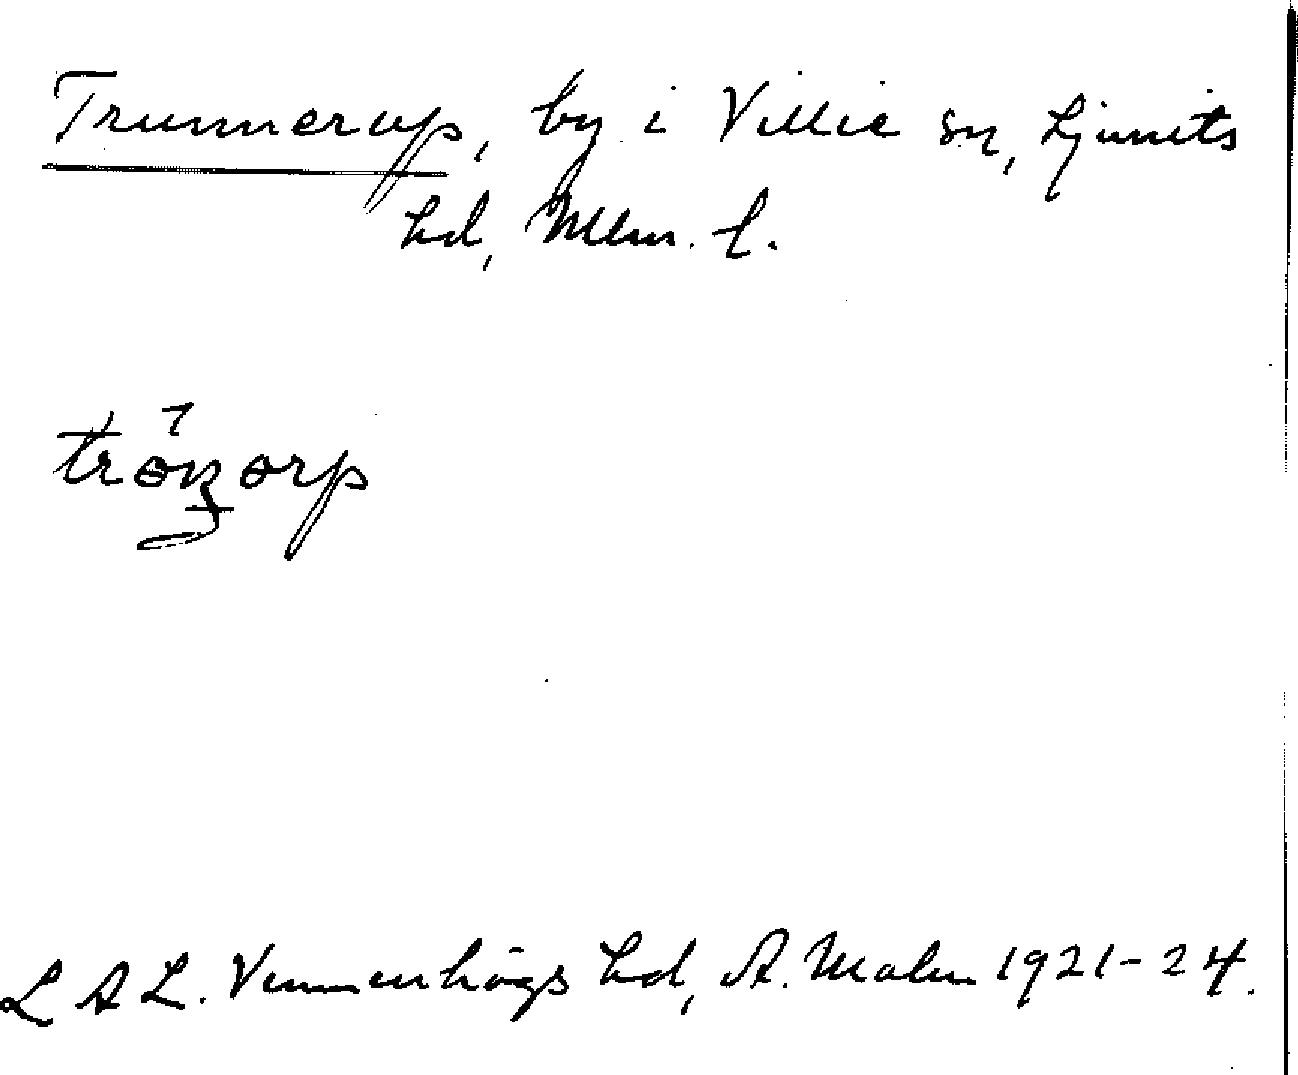 Trunnerup, by i Villie sn, Ljunits
hd, Mlm. l.
L A L. Vemmenhögs hd, A. Malm 1921-24.